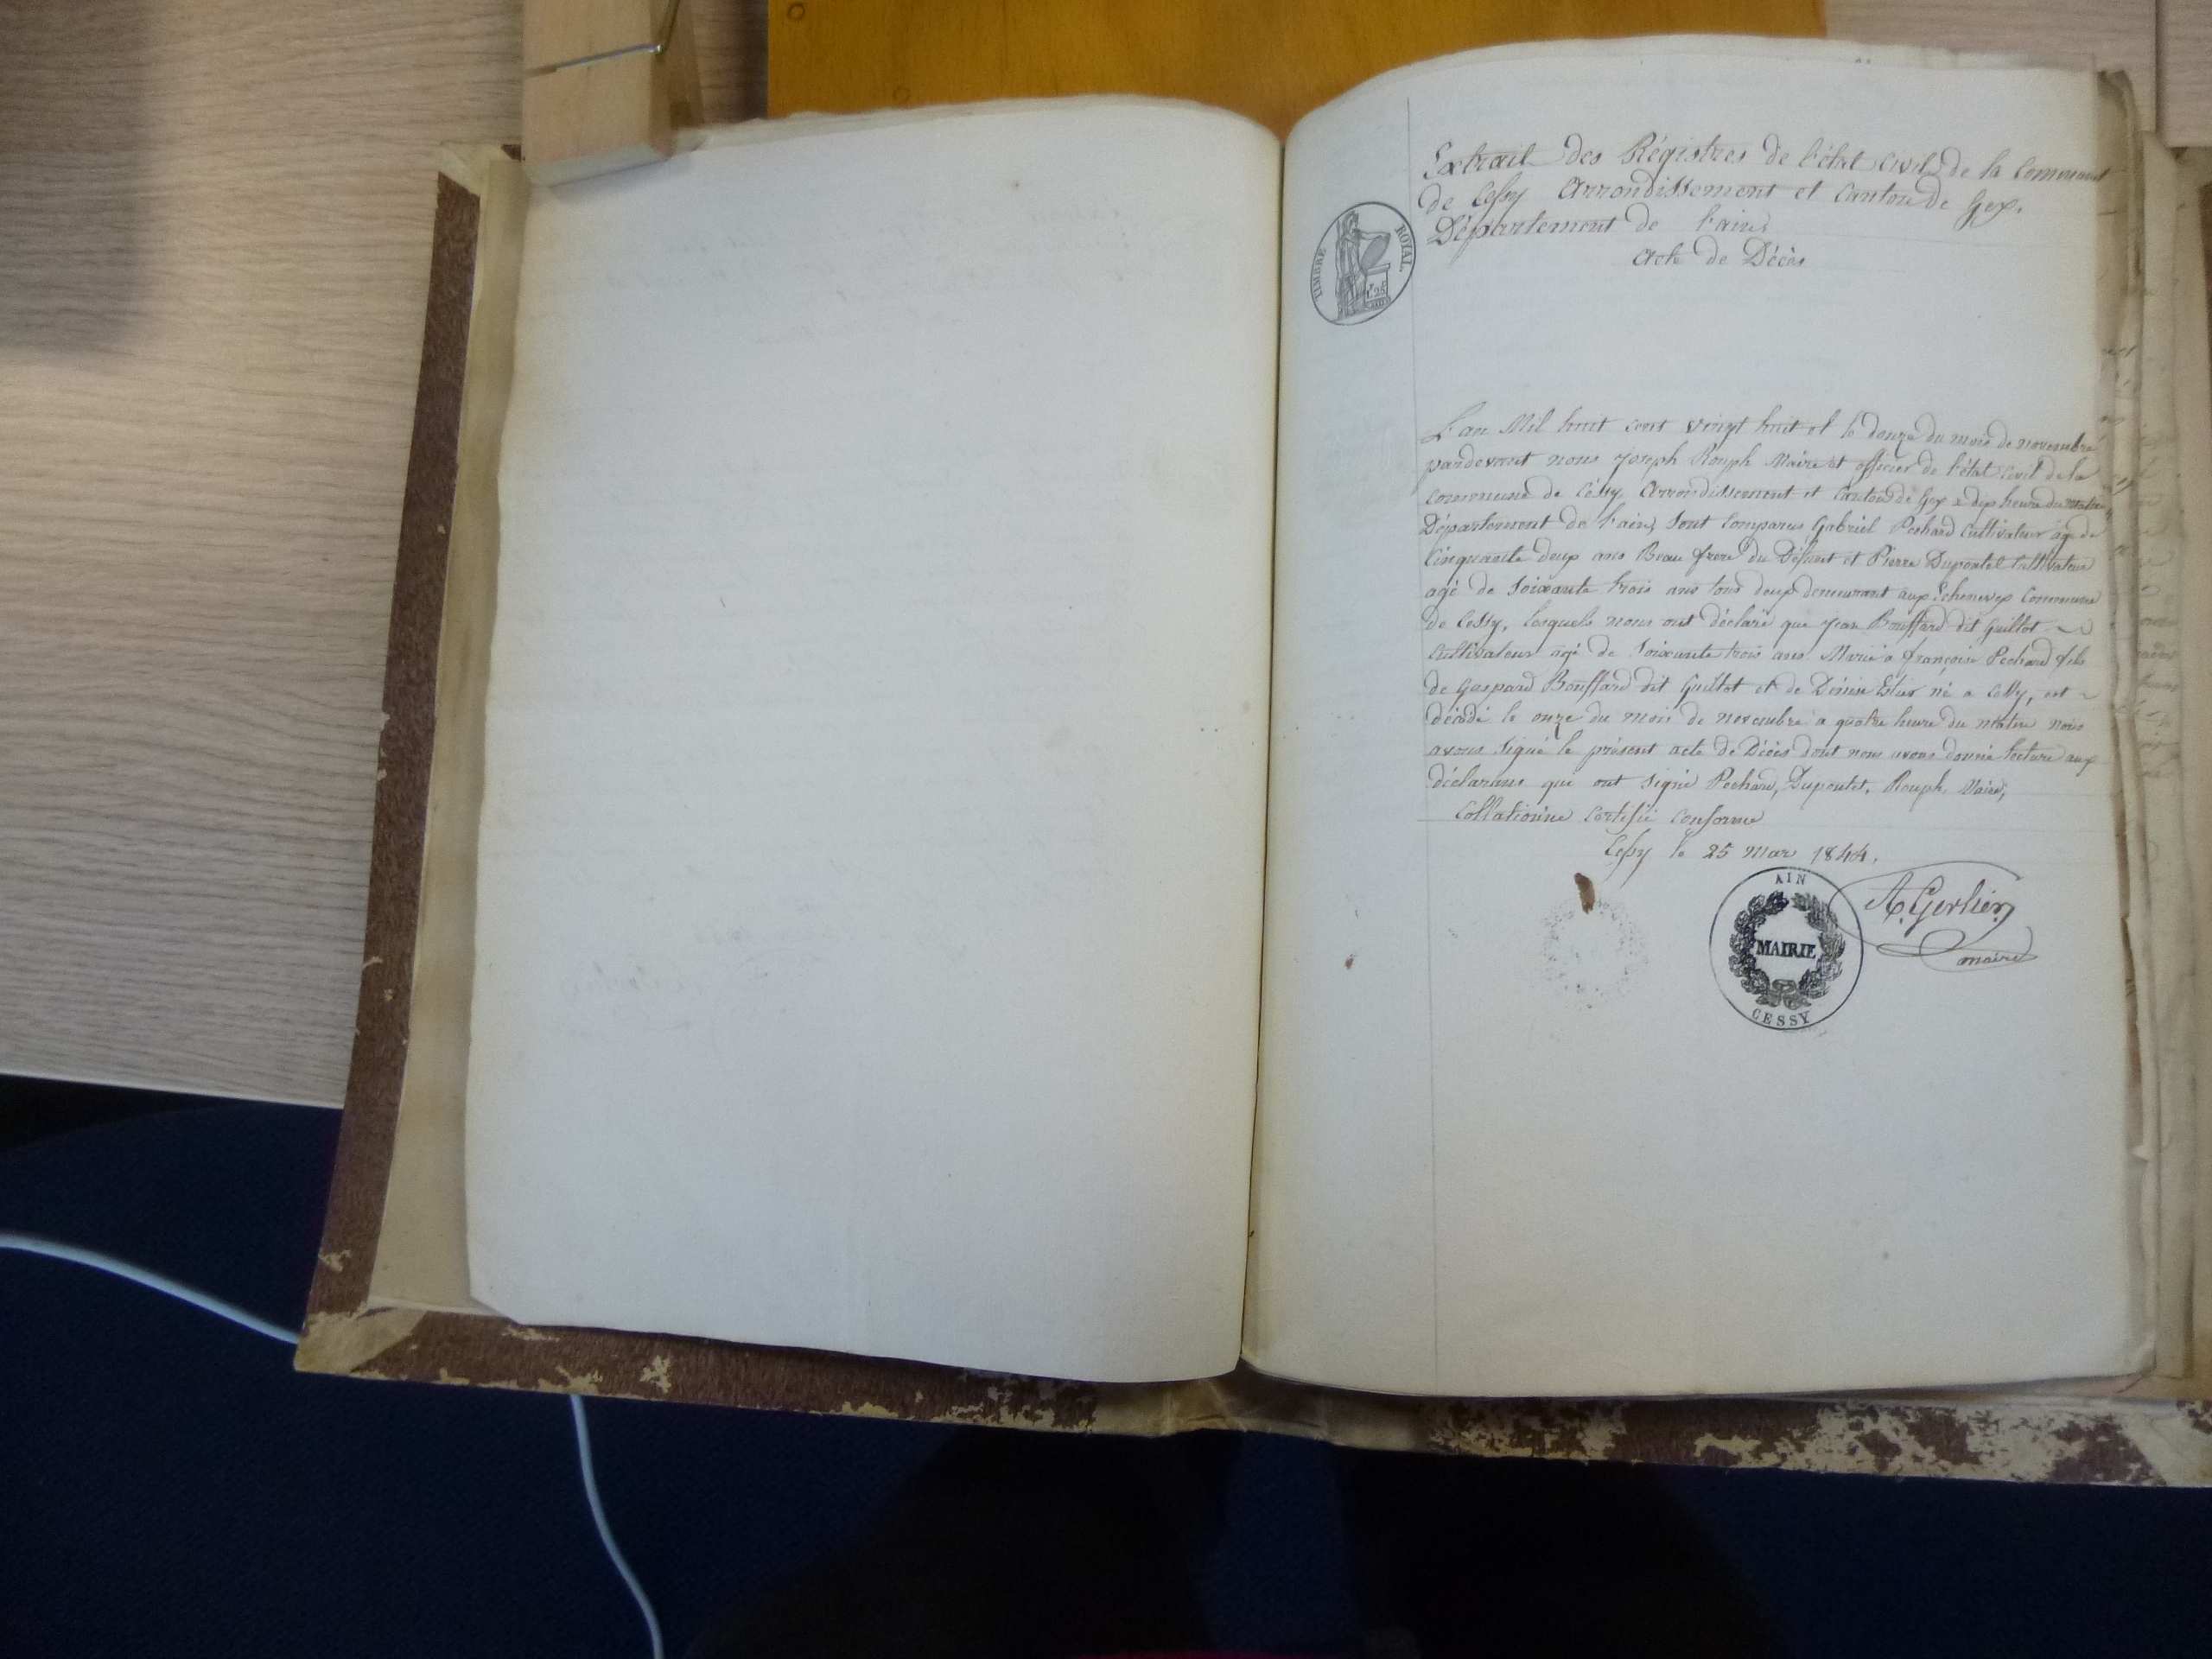 Extrait des Régistres de l'état civil de la Commune
de Cessy Arrondissement et Canton de Gex.
Département de l'ain
TIMBRE ROYAL
1F 25
Acte de Décès
L'an Mil huit cent vingt huit et le douze du mois de novembre
pardevant nous Joseph Rouph Maire et officier de l'état civil de la
Commune de Cessy Arrondissement et Canton de Gex a dix heure du matin
Département de l'ain, sont Comparus Gabriel Pechard Cultivateur agé de
Cinquante deux ans Beau frere du Défunt et Pierre Dupontet Cultivateur
agé de soixante trois ans tous deux demeurant aux Echenevex Commune
de Cessy, lesquels nous ont déclaré que Jean Bouffard dit Guillot
Cultivateur agé de soixante trois ans Marié a françoise Pechard fils
de Gaspard Bouffard dit Guillot et de né a Cessy, est
décédé le onze du mois de novembre a quatre heure du matin nous
avons signé le présent acte de Décès dont nous avons donné lecture aux
déclarans qui ont signé Pechard, Dupontet, Rouph, Maire,
Collationné Certifié Conforme
Cessy le 25 Mar 1844.
A. Gerlier
maire
AIN
MAIRIE
CESSY